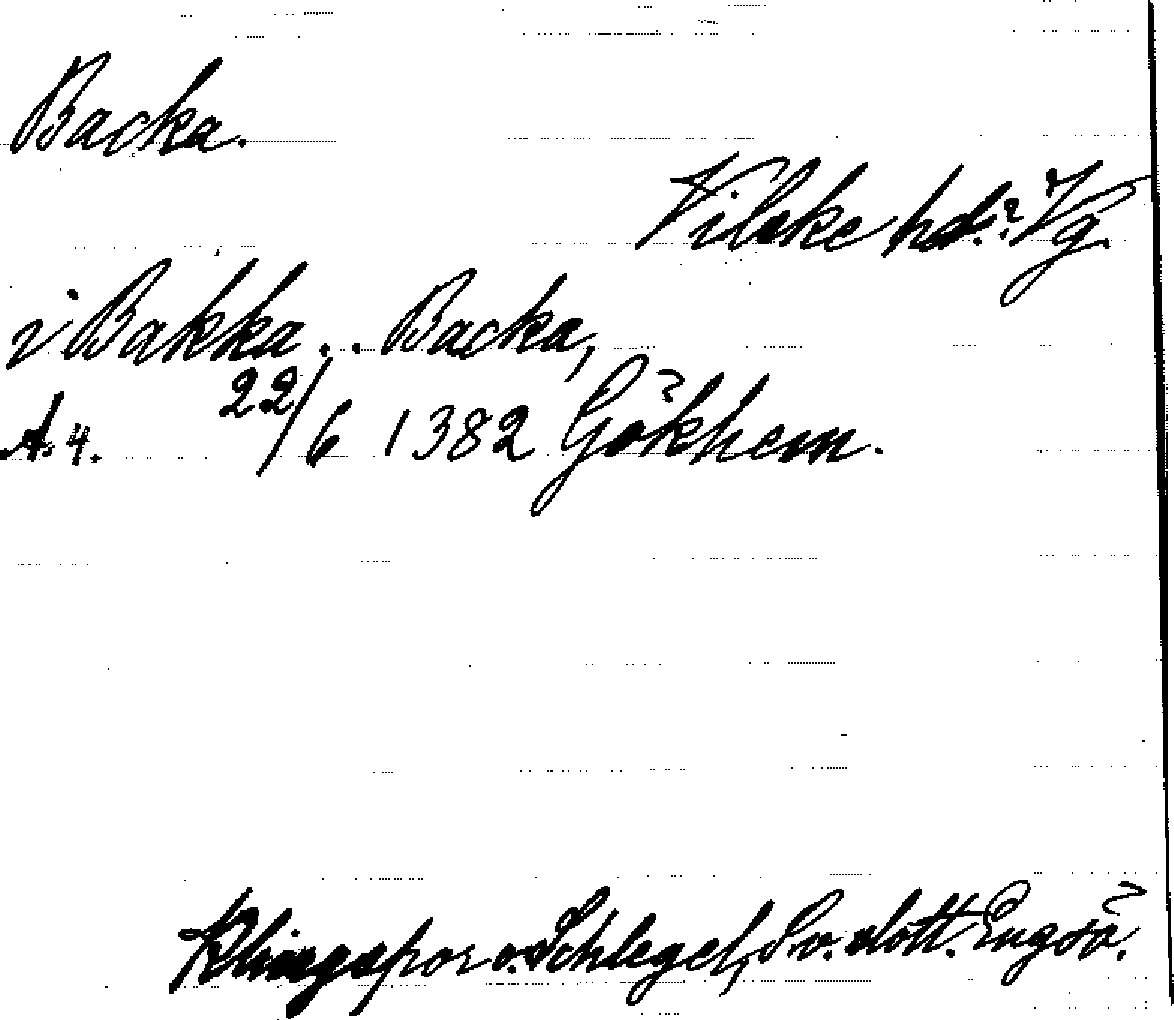 Backa.
Vilske hd.? Vg.
i Bakka .. Backa,
A. 4. 22/6 1382 Gökhem.
Klingspor o. Schlegel, Sv. slott. Engsö.